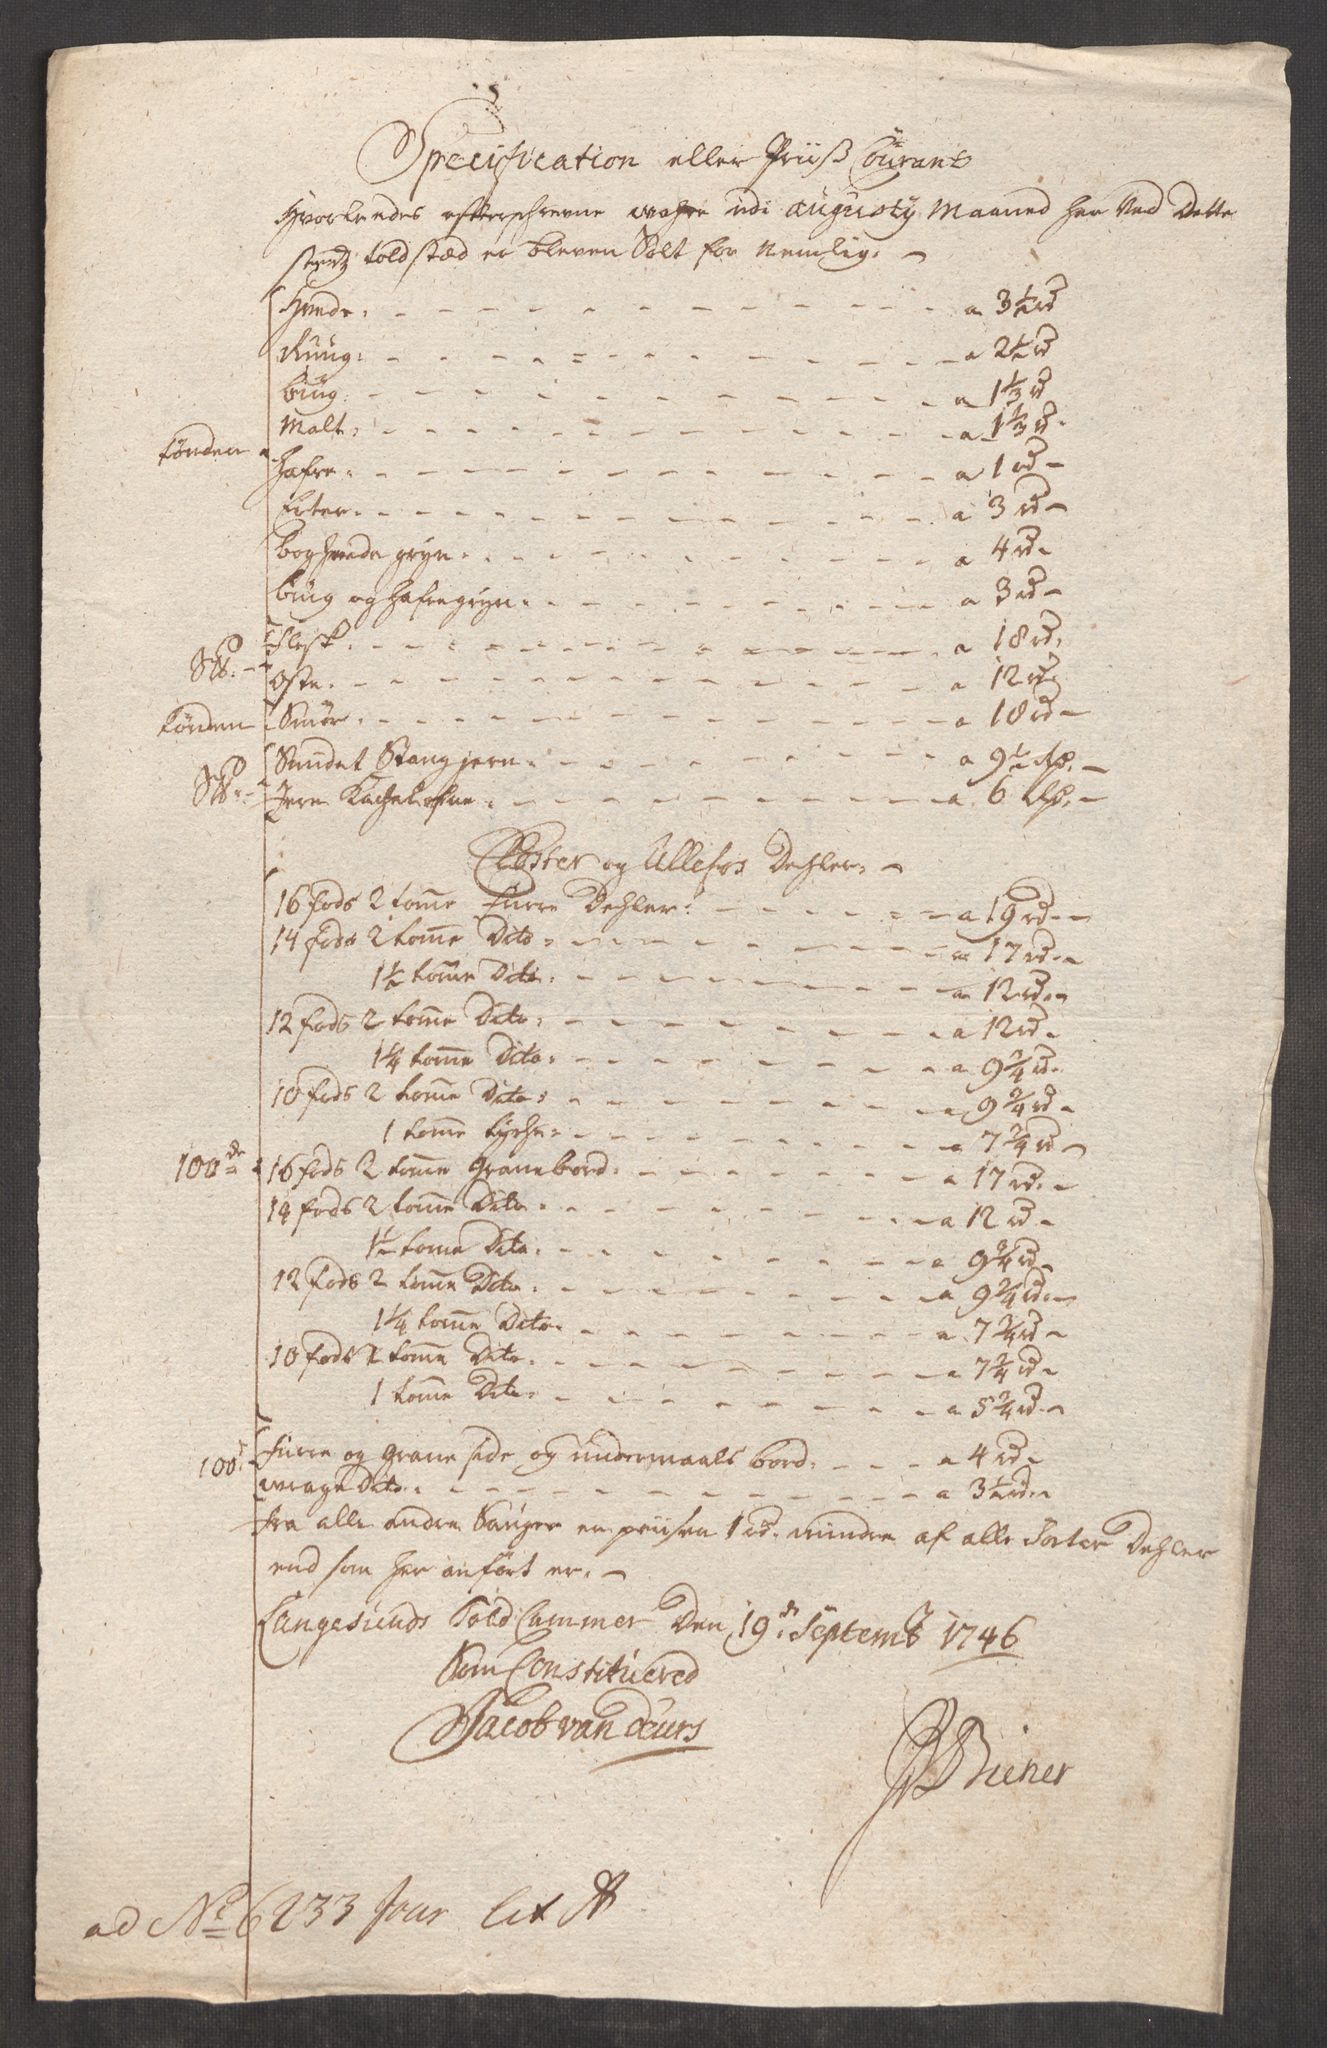 Specification eller Priiß Courant
Hvorledes efterschrevne wahre udi Augusty Maaned her Ved Dette
told stæd er bleven Solt for Nemlig.
Hvede a 3½ rd
Ruug a 2½ rd
biug a 1⅓ rd
Malt a 1⅓ rd
tønden
hafre a 1 rd
Erter a 3 rd
boghvede gryn a 4 rd
biug og hafregryn a 3 rd
Flesk a 18 rd
S℔
Oste a 12 rd
tønden Smør a 10 rd
Smidet Stangjern a 9½
S℔
Jern Kachelofne a 6
Closter og Ullefos Dehler
16 fods 2 tomme Furre Dehler a 19 rd
14 fods 2 tomme Dito a 17 rd
1½ tomme Dito a 12 rd
12 fods 2 tomme Dito a 12 rd
1¼ tomme Dito a 9¾ rd
10 fods 2 tomme Dito a 9¾ rd
1 tomme a 7¾ rd
100de 16 fods 2 tomme Granebord a 17 rd
14 fods 2 tomme Dito a 12 rd
1½ tomme Dito a 9¾ rd
12 fods 2 tomme Dito a 9¾ rd
1¼ tomme Dito a 7¾ rd
10 fods tomme Dito a 7¾ rd
1 tomme Dito a 5¾ rd
100d Furre og Grane side og undermaals bord a 4 rd
wrage Dito a 3½ rd
fra alle andre Sauger er priisen 1 rd mindre af alle Sorter Dehler
end som her anført er.
Langesunds Told Cammer Den 19de Septembr 1746
Som Constituered
Jacob van Deurs
Biener
ad No 6233 Jour Lit A